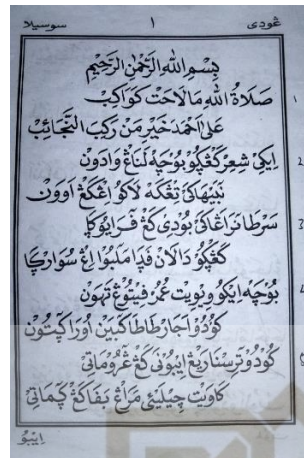 ڠودي ١ سوسيلا
بِسْمِ اللهِ الرَّحْمٰنِ الرَّحِيْمِ
صَلَاةُ اللهِ مَالَاحَتْ كَوَاكِبْ
عَلٰى اَحْمَدْ خَيْرِ مَنْ رَكِبَ النَّجَائِبْ
ايكي شعر كڠڮو بوچه لناڠ وادون
نبيهاكي تڠكه لاكو اڠكڠ اوون
سرطا نراڠاكي بودي كڠ فرايوڮا
كڠڮو دالان فدا ملبو اڠ سوارڮا
بوچه ايكو ويويت عمر فيتوڠ تهون
كودو اجار طاطا كبين اورا كتون
كودو ترسنا ريڠ ايبوني كڠ ڠروماتي
كاويت چيليئ مراڠ بفا كڠ ڮماتي
ايبو